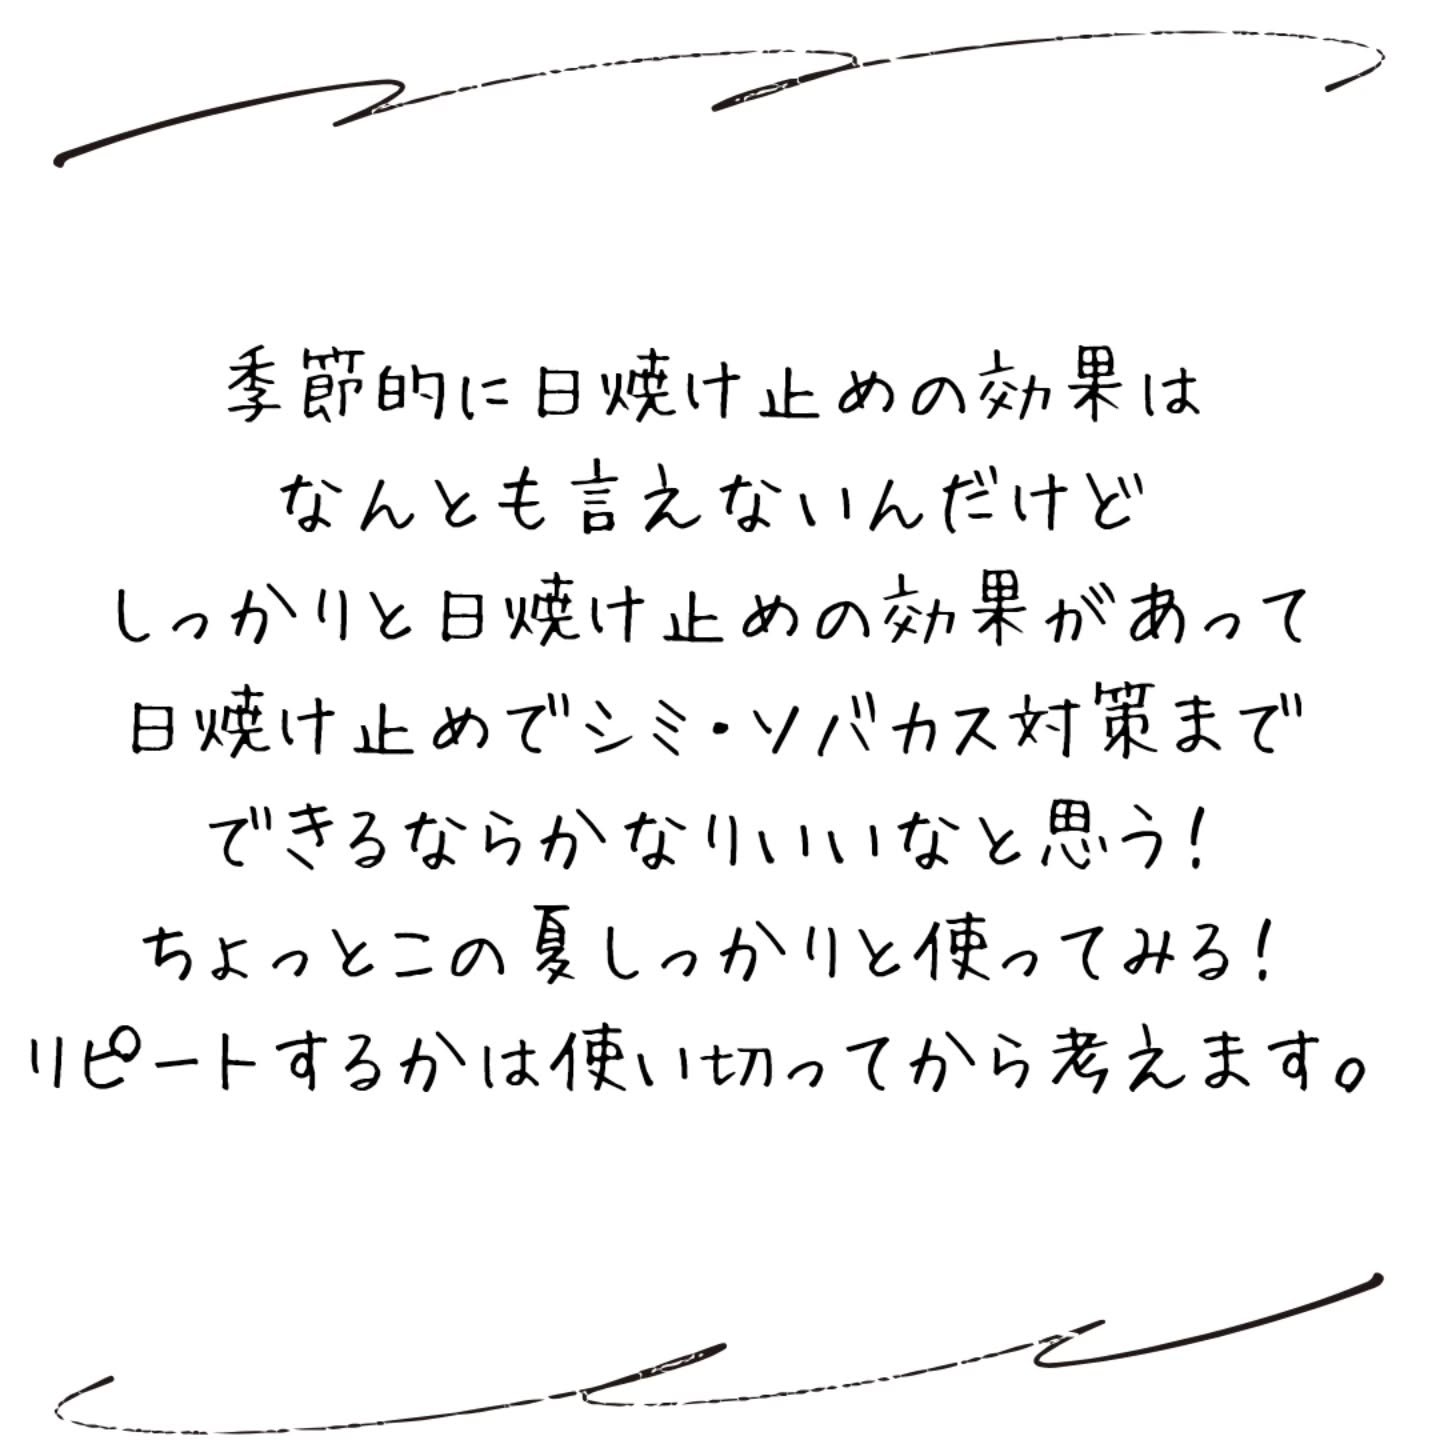 季節的に日焼け止めの効果は
なんとも言えないんだけど
しっかりと日焼け止めの効果があって
日焼け止めでシミ・ソバカス対策まで
できるならかなりいいなと思う！
ちょっとこの夏しっかりと使ってみる！
リピートするかは使い切ってから考えます。